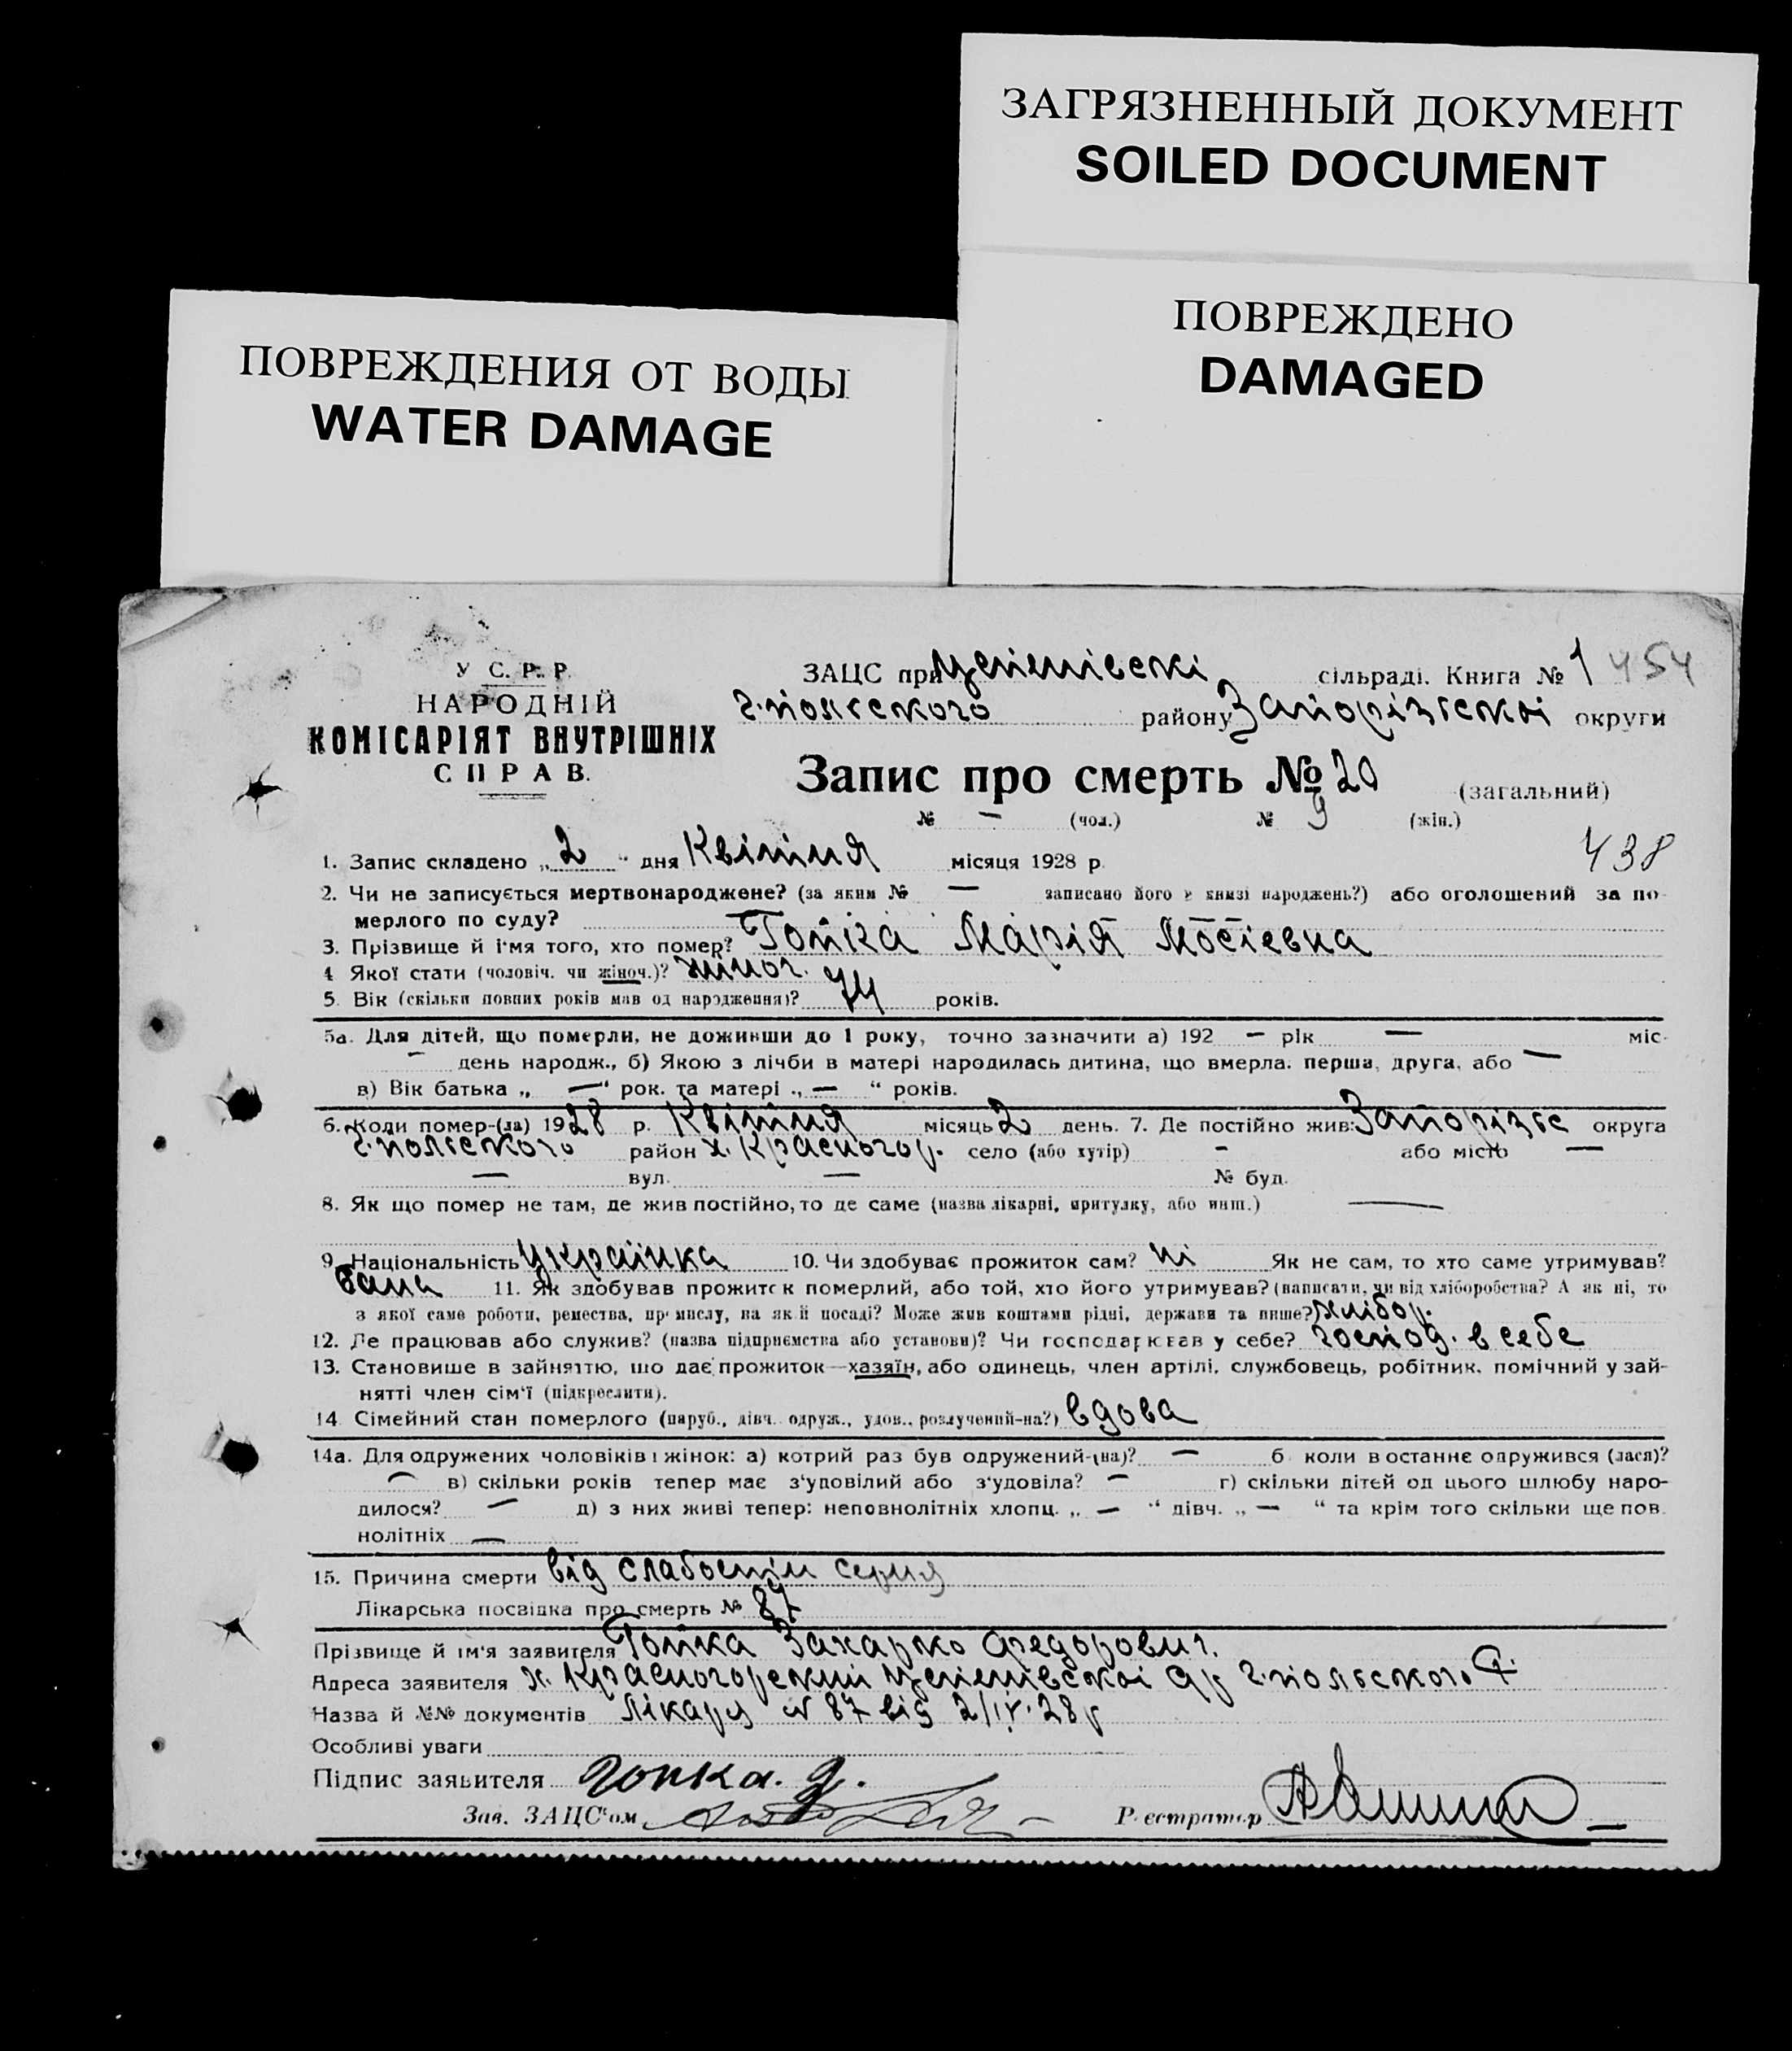 ЗАГРЯЗНЕННЫЙ ДОКУМЕНТ
SOILED DOCUMENT
ПОВРЕЖДЕНО
DAMAGED
ПОВРЕЖДЕНИЯ ОТ ВОДЫ
WATER DAMAGE
У С. Р. Р
НАРОДНІЙ
КОМІСАРІЯТ ВНУТРІШНІХ
СПРАВ.
ЗАЦС при сільраді. Книга № 1 454
г.польського району Запорізської округи
Запис про смерть № 20 (загальний)
№ — (чол.) № 9 (жін.)
438
1. Запис складено „ 2 “ дня Квітня місяця 1928 р.
2. Чи не записується мертвонароджене? (за яким № — записано його в книзі народжень?) або оголошений за по-
мерлого по суду?
3. Прізвище й і'мя того, хто помер? Гопка Марія Мосіевна
4 Якої стати (чоловіч. чи жіноч.)? жіноч.
5. Вік (скільки повних років мав од народження)? 74 років.
5а. Для дітей, що померли, не доживши до 1 року, точно зазначити а) 192 — рік — міс-
— день народж., б) Якою з лічби в матері народилась дитина, що вмерла. перша, друга, або —
в) Вік батька „ — “ рок. та матері „ — “ років.
6. Коли помер-(ла) 1928 р. Квітня місяць 2 день. 7. Де постійно жив: Запорізьс округа
г.польского район х. Красногор. село (або хутір) - або місто —
— вул. — № буд.
8. Як що помер не там, де жив постійно, то де саме (назва лікарні, притулку, або инш.) —
9. Національність українка 10. Чи здобуває прожиток сам? ні Як не сам, то хто саме утримував?
11. Як здобував прожиток померлий, або той, хто його утримував? (написати, чи від хліборобства? А як ні, то
з якої саме роботи, ремества, промислу, на якій посаді? Може жив коштами рідні, держави та инше? хлібор.
12. Де працював або служив? (назва підприємства або установи)? Чи господарював у себе? господ. в себе
13. Становище в зайняттю, що дає прожиток—хазяїн, або одинець, член артілі, службовець, робітник, помічний у зай-
нятті член сім'ї (підкреслити).
14 Сімейний стан померлого (паруб., дівч. одруж., удов., розлучений-на?) вдова
14а. Для одружених чоловіків і жінок: а) котрий раз був одружений-(на)? — б коли в останнє одружився (лася)?
— в) скільки років тепер має з'удовілий або з'удовіла? — г) скільки дітей од цього шлюбу наро-
дилося? — д) з них живі тепер: неповнолітніх хлопц. „ — “ дівч. „ — “ та крім того скільки ще пов.
нолітніх —
15. Причина смерти від слабости серця
Лікарська посвідка про смерть № 87
Прізвище й ім'я заявителя Гопка Захарко Федорович.
Адреса заявителя х. Красногорский г.польского
Назва й №№ документів Лікаря № 87 від 2/IV.28 р
Особливі уваги
Підпис заявителя гопка.
Зав. ЗАЦС'ом
Реєстратор